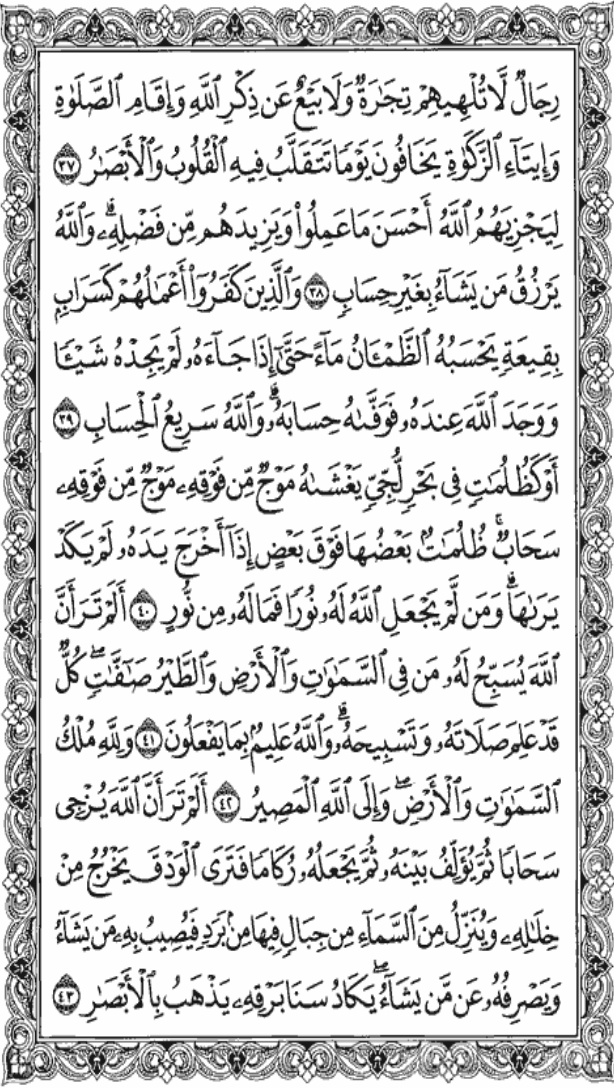 رِجَالٌ لَّا تُلْهِيهِمْ تِجَٰرَةٌ وَلَا بَيْعٌ عَن ذِكْرِ ٱللَّهِ وَإِقَامِ ٱلصَّلَوٰةِ
وَإِيتَآءِ ٱلزَّكَوٰةِ يَخَافُونَ يَوْمًا تَتَقَلَّبُ فِيهِ ٱلْقُلُوبُ وَٱلْأَبْصَٰرُ ٣٧
لِيَجْزِيَهُمُ ٱللَّهُ أَحْسَنَ مَا عَمِلُوا۟ وَيَزِيدَهُم مِّن فَضْلِهِۦۗ وَٱللَّهُ
يَرْزُقُ مَن يَشَآءُ بِغَيْرِ حِسَابٍ ٣٨ وَٱلَّذِينَ كَفَرُوٓا۟ أَعْمَٰلُهُمْ كَسَرَابٍۭ
بِقِيعَةٍ يَحْسَبُهُ ٱلظَّمْـَٔانُ مَآءً حَتَّىٰٓ إِذَا جَآءَهُۥ لَمْ يَجِدْهُ شَيْـًٔا
وَوَجَدَ ٱللَّهَ عِندَهُۥ فَوَفَّىٰهُ حِسَابَهُۥۗ وَٱللَّهُ سَرِيعُ ٱلْحِسَابِ ٣٩
أَوْ كَظُلُمَٰتٍ فِى بَحْرٍ لُّجِّىٍّ يَغْشَىٰهُ مَوْجٌ مِّن فَوْقِهِۦ مَوْجٌ مِّن فَوْقِهِۦ
سَحَابٌۚ ظُلُمَٰتٌۢ بَعْضُهَا فَوْقَ بَعْضٍ إِذَآ أَخْرَجَ يَدَهُۥ لَمْ يَكَدْ
يَرَىٰهَاۗ وَمَن لَّمْ يَجْعَلِ ٱللَّهُ لَهُۥ نُورًا فَمَا لَهُۥ مِن نُّورٍ ٤٠ أَلَمْ تَرَ أَنَّ
ٱللَّهَ يُسَبِّحُ لَهُۥ مَن فِى ٱلسَّمَٰوَٰتِ وَٱلْأَرْضِ وَٱلطَّيْرُ صَٰٓفَّٰتٍۖ كُلٌّ
قَدْ عَلِمَ صَلَاتَهُۥ وَتَسْبِيحَهُۥۗ وَٱللَّهُ عَلِيمٌۢ بِمَا يَفْعَلُونَ ٤١ وَلِلَّهِ مُلْكُ
ٱلسَّمَٰوَٰتِ وَٱلْأَرْضِۖ وَإِلَى ٱللَّهِ ٱلْمَصِيرُ ٤٢ أَلَمْ تَرَ أَنَّ ٱللَّهَ يُزْجِى
سَحَابًا ثُمَّ يُؤَلِّفُ بَيْنَهُۥ ثُمَّ يَجْعَلُهُۥ رُكَامًا فَتَرَى ٱلْوَدْقَ يَخْرُجُ مِنْ
خِلَٰلِهِۦ وَيُنَزِّلُ مِنَ ٱلسَّمَآءِ مِن جِبَالٍ فِيهَا مِنۢ بَرَدٍ فَيُصِيبُ بِهِۦ مَن يَشَآءُ
وَيَصْرِفُهُۥ عَن مَّن يَشَآءُۖ يَكَادُ سَنَا بَرْقِهِۦ يَذْهَبُ بِٱلْأَبْصَٰرِ ٤٣